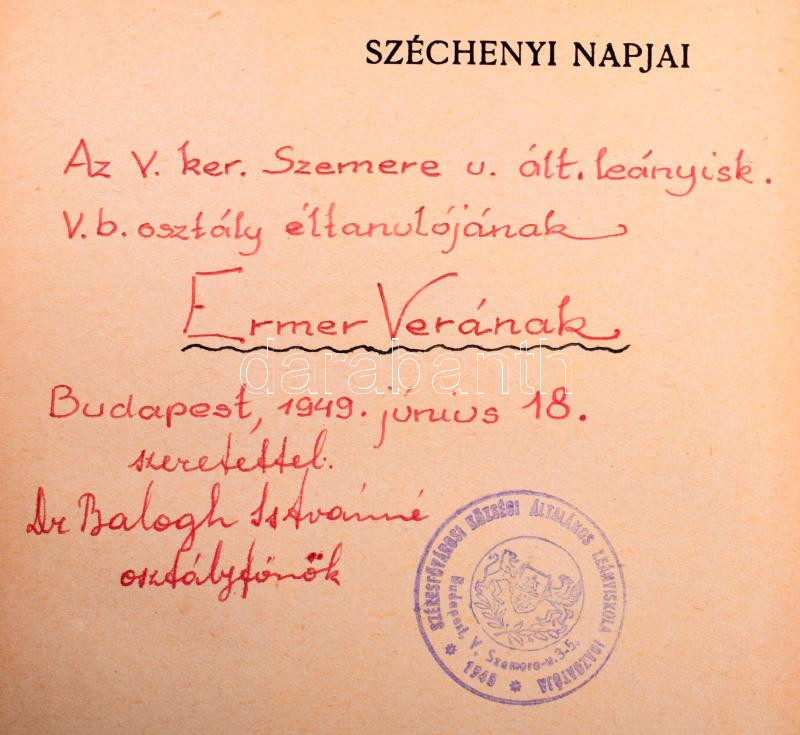 SZÉCHENYI NAPJAI
Az V. ker. Szemere u. ált. leányisk.
V. b. osztály éltanulójának
Ermer Verának
darabanth
Budapest, 1949. június 18.
szeretettel.
Dr Balogh Istvánné
osztályfőnök
SZÉKESFŐVÁROSI KÖZSÉGI ÁLTALÁNOS LEÁNYISKOLA IGAZGATÓJA
Budapest, V. Szemere-u. 3-5.
* 1949 *